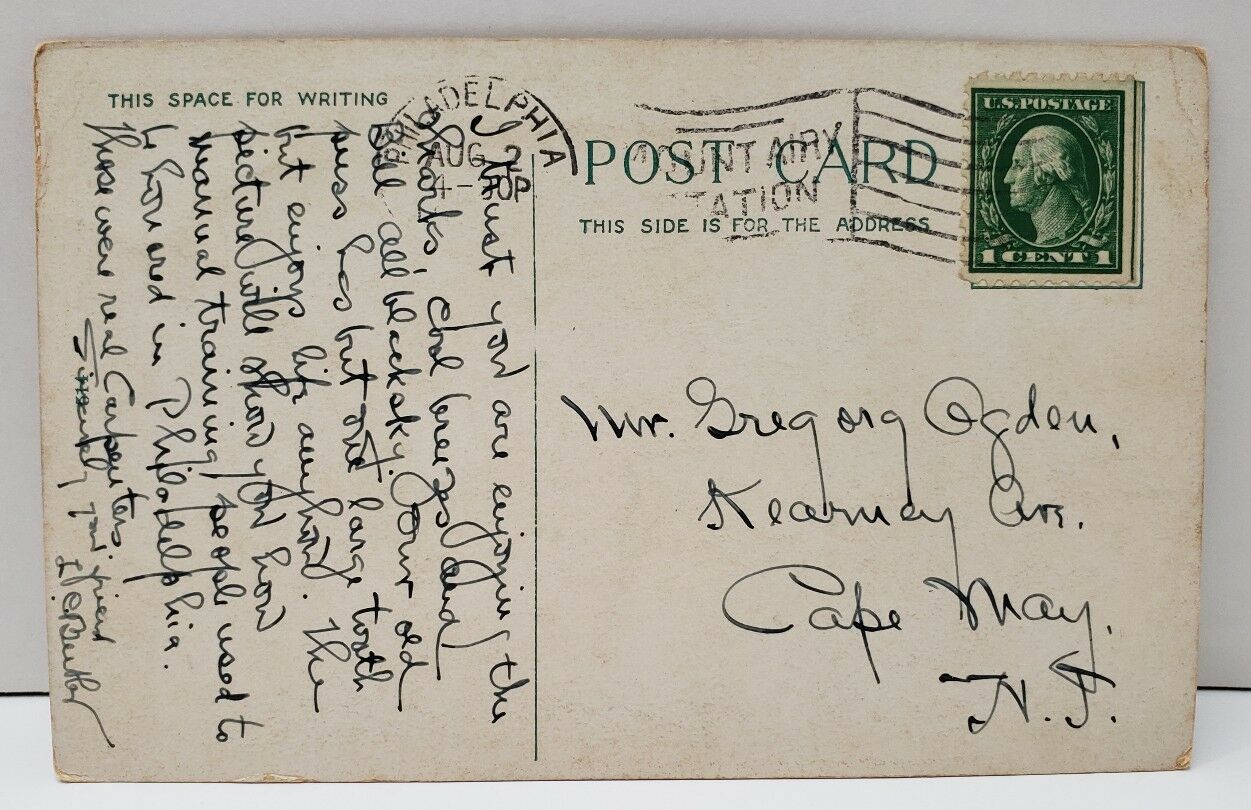 THIS SPACE FOR WRITING
PHILADELPHIA
AUG
4-
MOUNT AIRY
STATION
POST CARD
THIS SIDE IS FOR THE ADDRESS
U.S. POSTAGE
1 CENT 1
I trust you are enjoying the
sharks, cool breezes and
all blacksky. Your old
puss has but one large tooth
but enjoys life anyhow. The
picture will show you how
manual training people used to
be housed in Philadelphia.
Those were real Carpenters.
Sincerely your friend
Butler
Mr. Gregory Ogden,
Kearney Ave.
Cape May,
N.J.